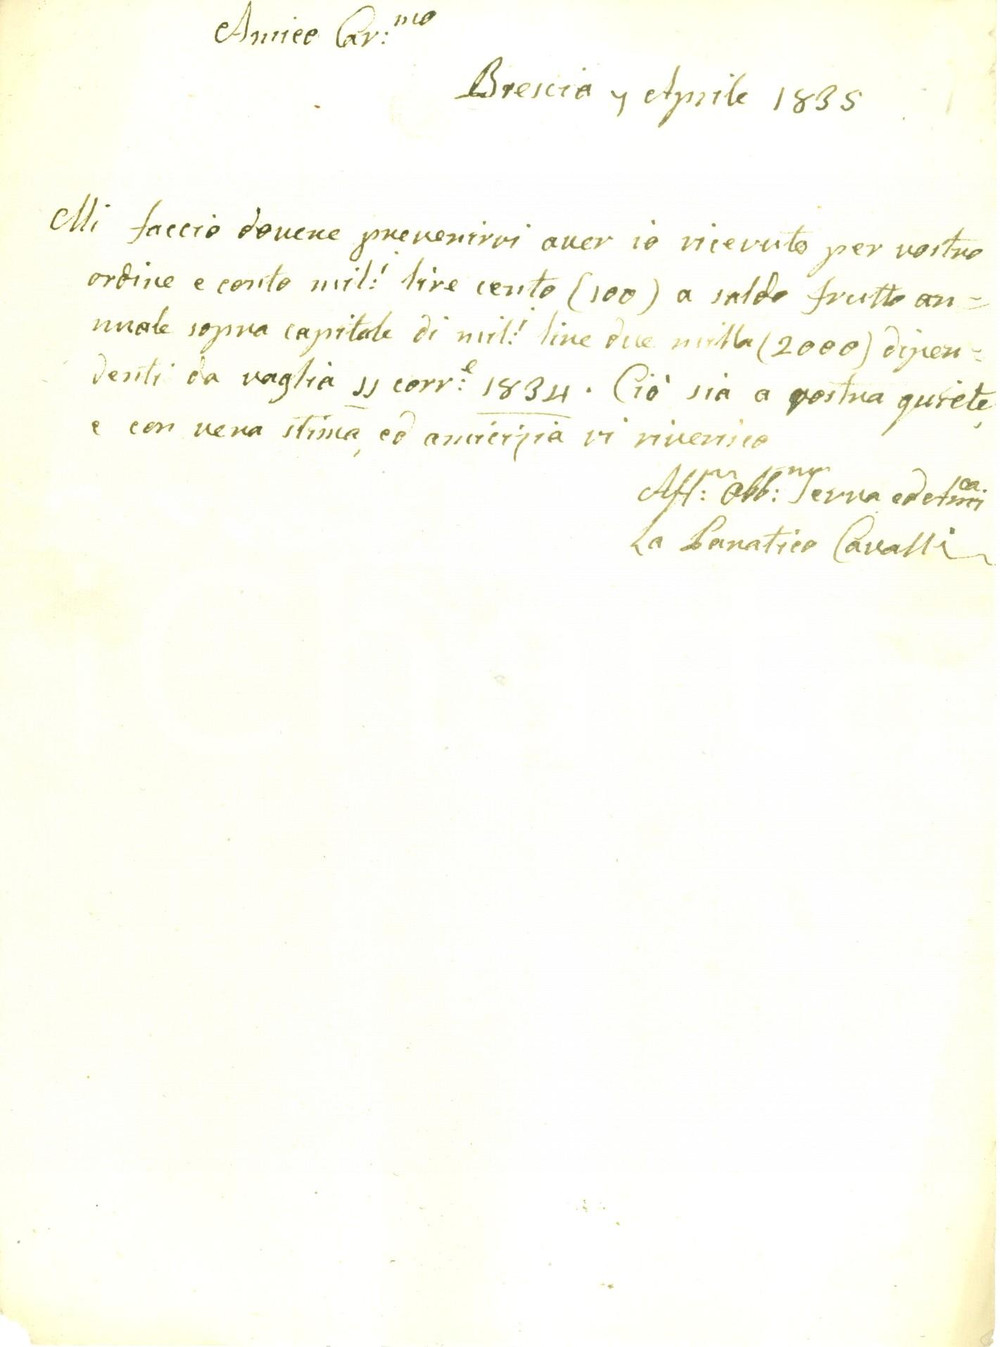 Amico Car:mo
Brescia 9 Aprile 1835
Mi faccio dovere prevenirvi aver io ricevuto per vostro
ordine e conto mil:i lire cento (100) a saldo frutto an=
nuale sopra capitale di mil:i lire due milla (2000) dipen=
denti da vaglia 11 corr:e 1834. Ciò sia a vostra quiete,
e con vera stima, ed amicizia vi riverisco
Aff: Obb: Serva ed
La Cavalli